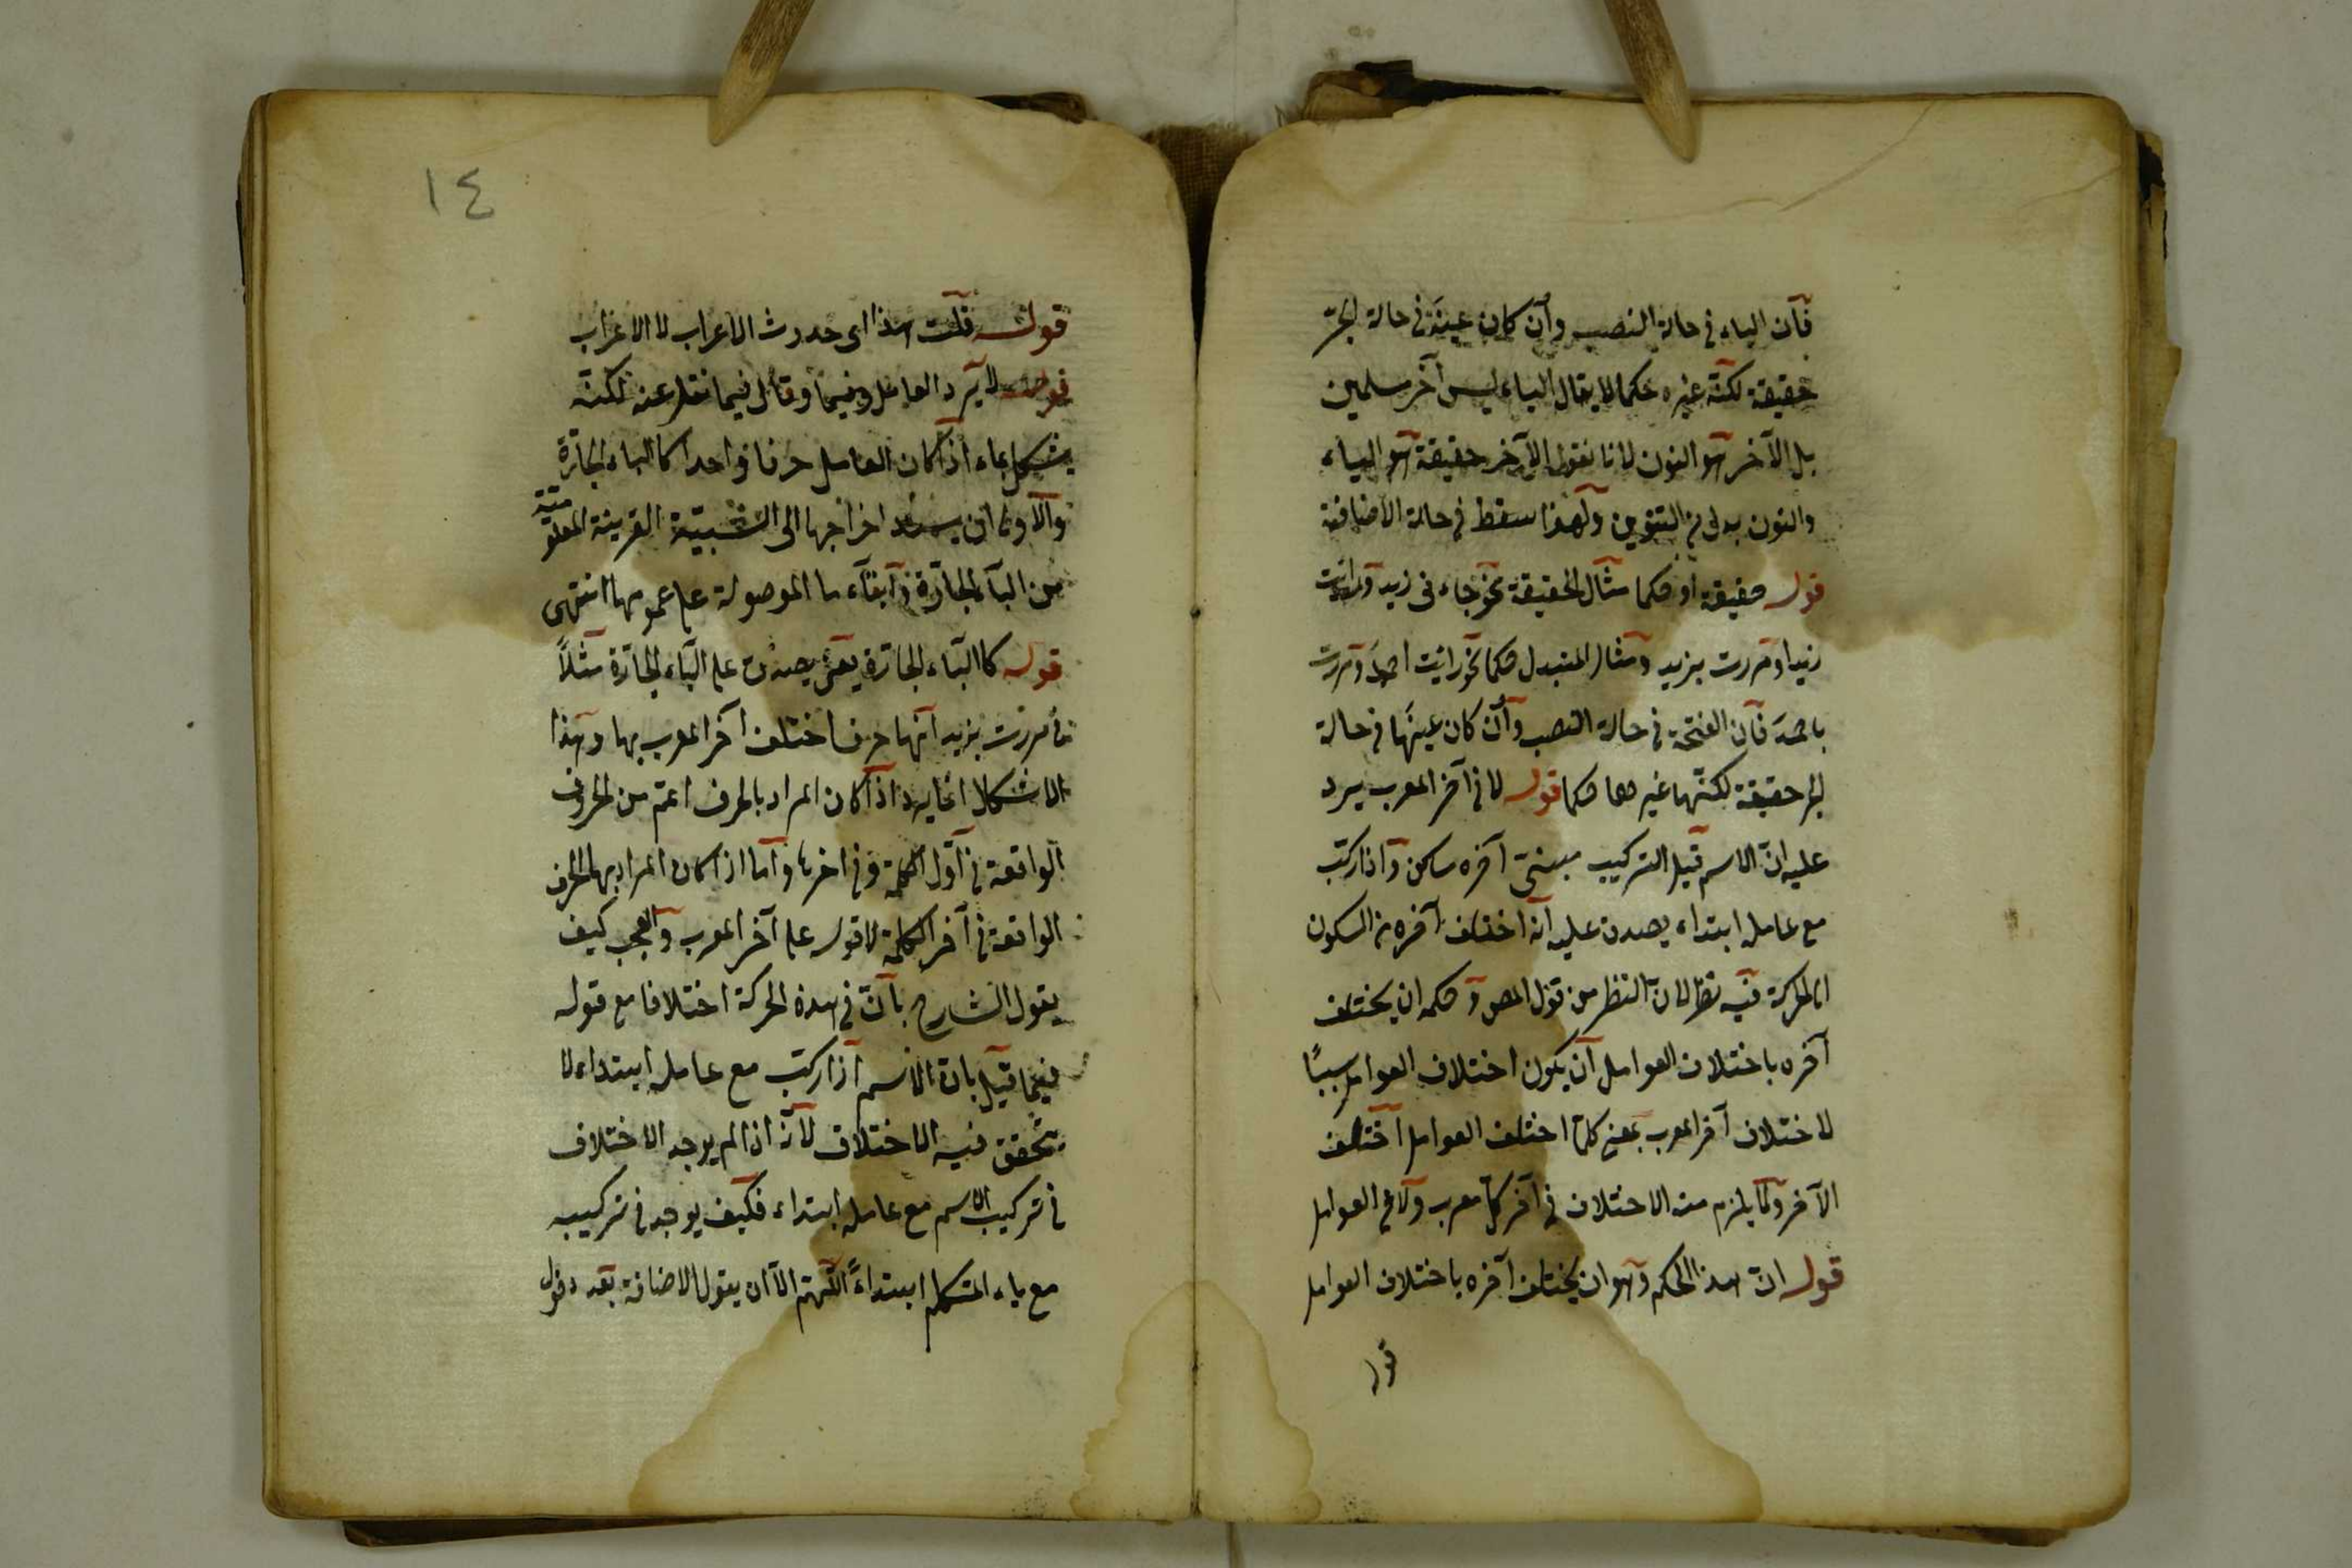 فان الياء في حالة النصب وأن كان عينه في حالة الجر
حقيقة لكنه غيره حكما لا يقال الياء ليس آخر مسلمين
بل الآخر هو النون لانا نقول الآخر حقيقة هو الياء
والنون بدل من التنوين ولهذا سقط في حالة الاضافة
قوله حقيقة او حكما مثال الحقيقة نحو جاءني زيد ورايت
زيدا ومررت بزيد ومثال المتبدل حكما نحو رايت احمد ومررت
باحمد فان الفتحة في حالة النصب وأن كان عينها في حالة
الجر حقيقة لكنها غيرها حكما قوله لا في آخر المعرب يرد
عليه ان الاسم قبل التركيب مبني آخره ساكن واذا ركب
مع عامله ابتداء يصدق عليه انه اختلف آخره من السكون
الى الحركة فيه نظر لان النظر من قول المص وحكمه ان يختلف
آخره باختلاف العوامل أن يكون اختلاف العوامل سببًا
لاختلاف آخر المعرب بمعنى كلما اختلف العوامل اختلف
الآخر ولا يلزم منه الاختلاف في آخر كل معرب ولا في العوامل
قوله ان هذا الحكم وهو ان يختلف آخره باختلاف العوامل
١٤
قوله قلت هذا اى حدوث الاعراب لا الاعراب
قوله لا يرد العامل وقائل فيما نقل عنه لكنه
يشكل بما اذا كان العامل حرفا واحدا كالباء الجارة
والاولى ان يسند اخراجها الى القرينة المعلومة
من الباء الجارة وابقاء ما الموصولة على عمومها انتهى
قوله كالباء الجارة يعنى يصدق على الباء الجارة مثلاً
في مررت بزيد انها حرف اختلف آخر المعرب بها وهذا
الاشكال انما يرد اذا كان المراد بالحرف اعم من الحروف
الواقعة في أول الكلمة وفي اخرها وأما اذا كان المراد بها الحرف
الواقعة في آخر الكلمة لا قوله على آخر المعرب والعجب كيف
يقول الشارح بأن في هذه الحركة اختلافا مع قوله
فيما قبل بان الاسم اذا ركب مع عامله ابتداء لا
يتحقق فيه الاختلاف لأنه اذا لم يوجد الاختلاف
في تركيب الاسم مع عامله ابتداء فكيف يوجد في تركيبه
مع ياء المتكلم ابتداءً اللهم الا ان يقول الاضافة بعد دخول